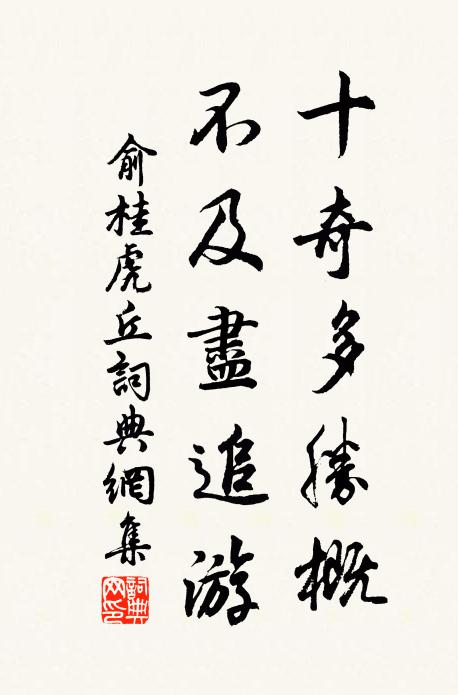 十奇多勝概
不及盡追游
俞桂虎丘詞典網集
詞典网印